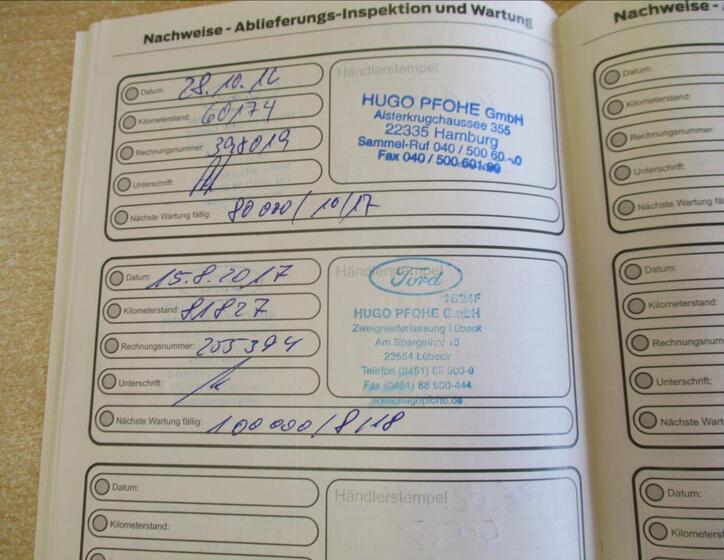 Nachweise - Ablieferungs-Inspektion und Wartung
Nachweise -
Datum: 28.10.12
Kilometerstand: 60174
Rechnungsnummer: 398019
Unterschrift:
Nächste Wartung fällig: 80000/10/17
Händlerstempel
HUGO PFOHE GmbH
Alsterkrugchaussee 355
22335 Hamburg
Sammel-Ruf 040 / 500 60-0
Fax 040 /
Datum: 15.8.2017
Kilometerstand: 81827
Rechnungsnummer: 255394
Unterschrift:
Nächste Wartung fällig: 100000/8/18
Händlerstempel
Ford
HUGO PFOHE GmbH
Zweigniederlassung Lübeck
Am 10
23554 Lübeck
Telefon (0451) 88 900-0
Fax (0451) 88 900-444
www.hugopfohe.de
Datum:
Kilometerstand:
Händlerstempel
Datum:
Kilometerstand:
Rechnungsnummer:
Unterschrift:
Nächste Wartung fäl
Datum:
Kilometerstand:
Rechnungsnum
Unterschrift:
Nächste Wart
Datum:
Kilometers